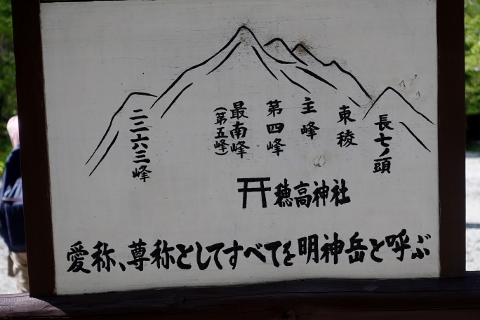 二二六三峰
最南峰
(第五峰)
第四峰
主峰
東稜
長七ノ頭
穂高神社
愛称、尊称としてすべてを明神岳と呼ぶ